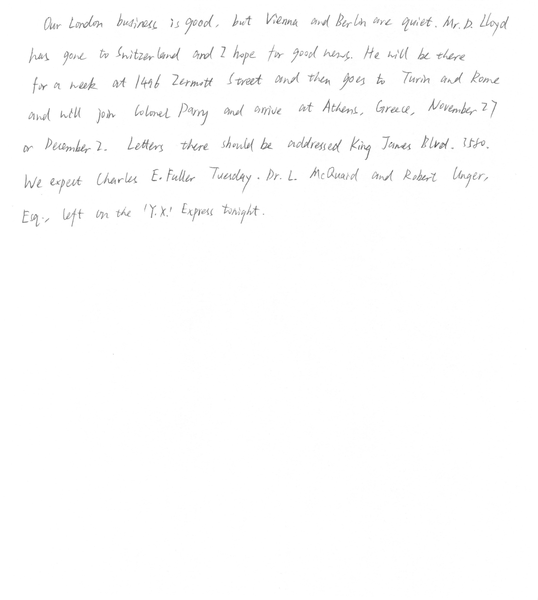 Our London business is good, but Vienna and Berlin are quiet. Mr. D. Lloyd
has gone to Switzerland and I hope for good news. He will be there
for a week at 1496 Zermott Street and then goes to Turin and Rome
and will join Colonel Parry and arrive at Athens, Greece, November 27
or December 2. Letters there should be addressed King James Blvd. 3580.
We expect Charles E. Fuller Tuesday. Dr. L. McQuaid and Robert Unger,
Esq., left on the 'Y.X.' Express tonight.